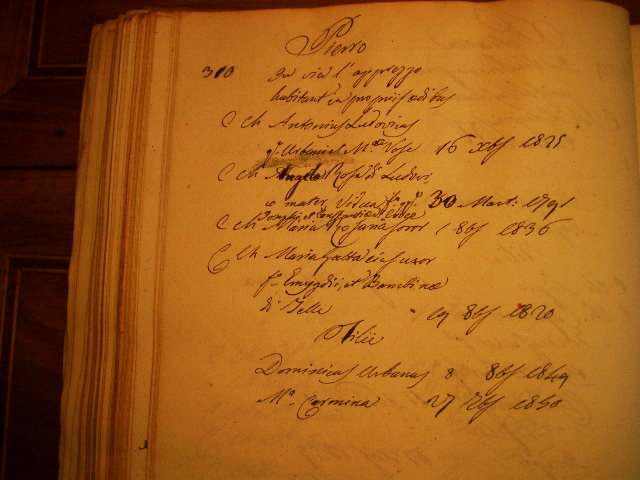 Pierro
310 In via l'apprezzo
habitant in propriis ædibus
C Ch Antonius Ludovicus
f. Urbani et Mæ Rosæ 16 Xbs 1825
C Ch Angela Rosa di Ludovi:
co mater, Vidua 30 Mart: 1791
C Ch Maria Rosaria soror 1 8bs 1836
C Ch Maria Gatta ejus uxor
fa Emygdii, et Bambinæ
di Telle 19 8bs 1820
Filii
Dominicus Urbanus 8 8bs 1849
Ma. Carmina 27 7bs 1850